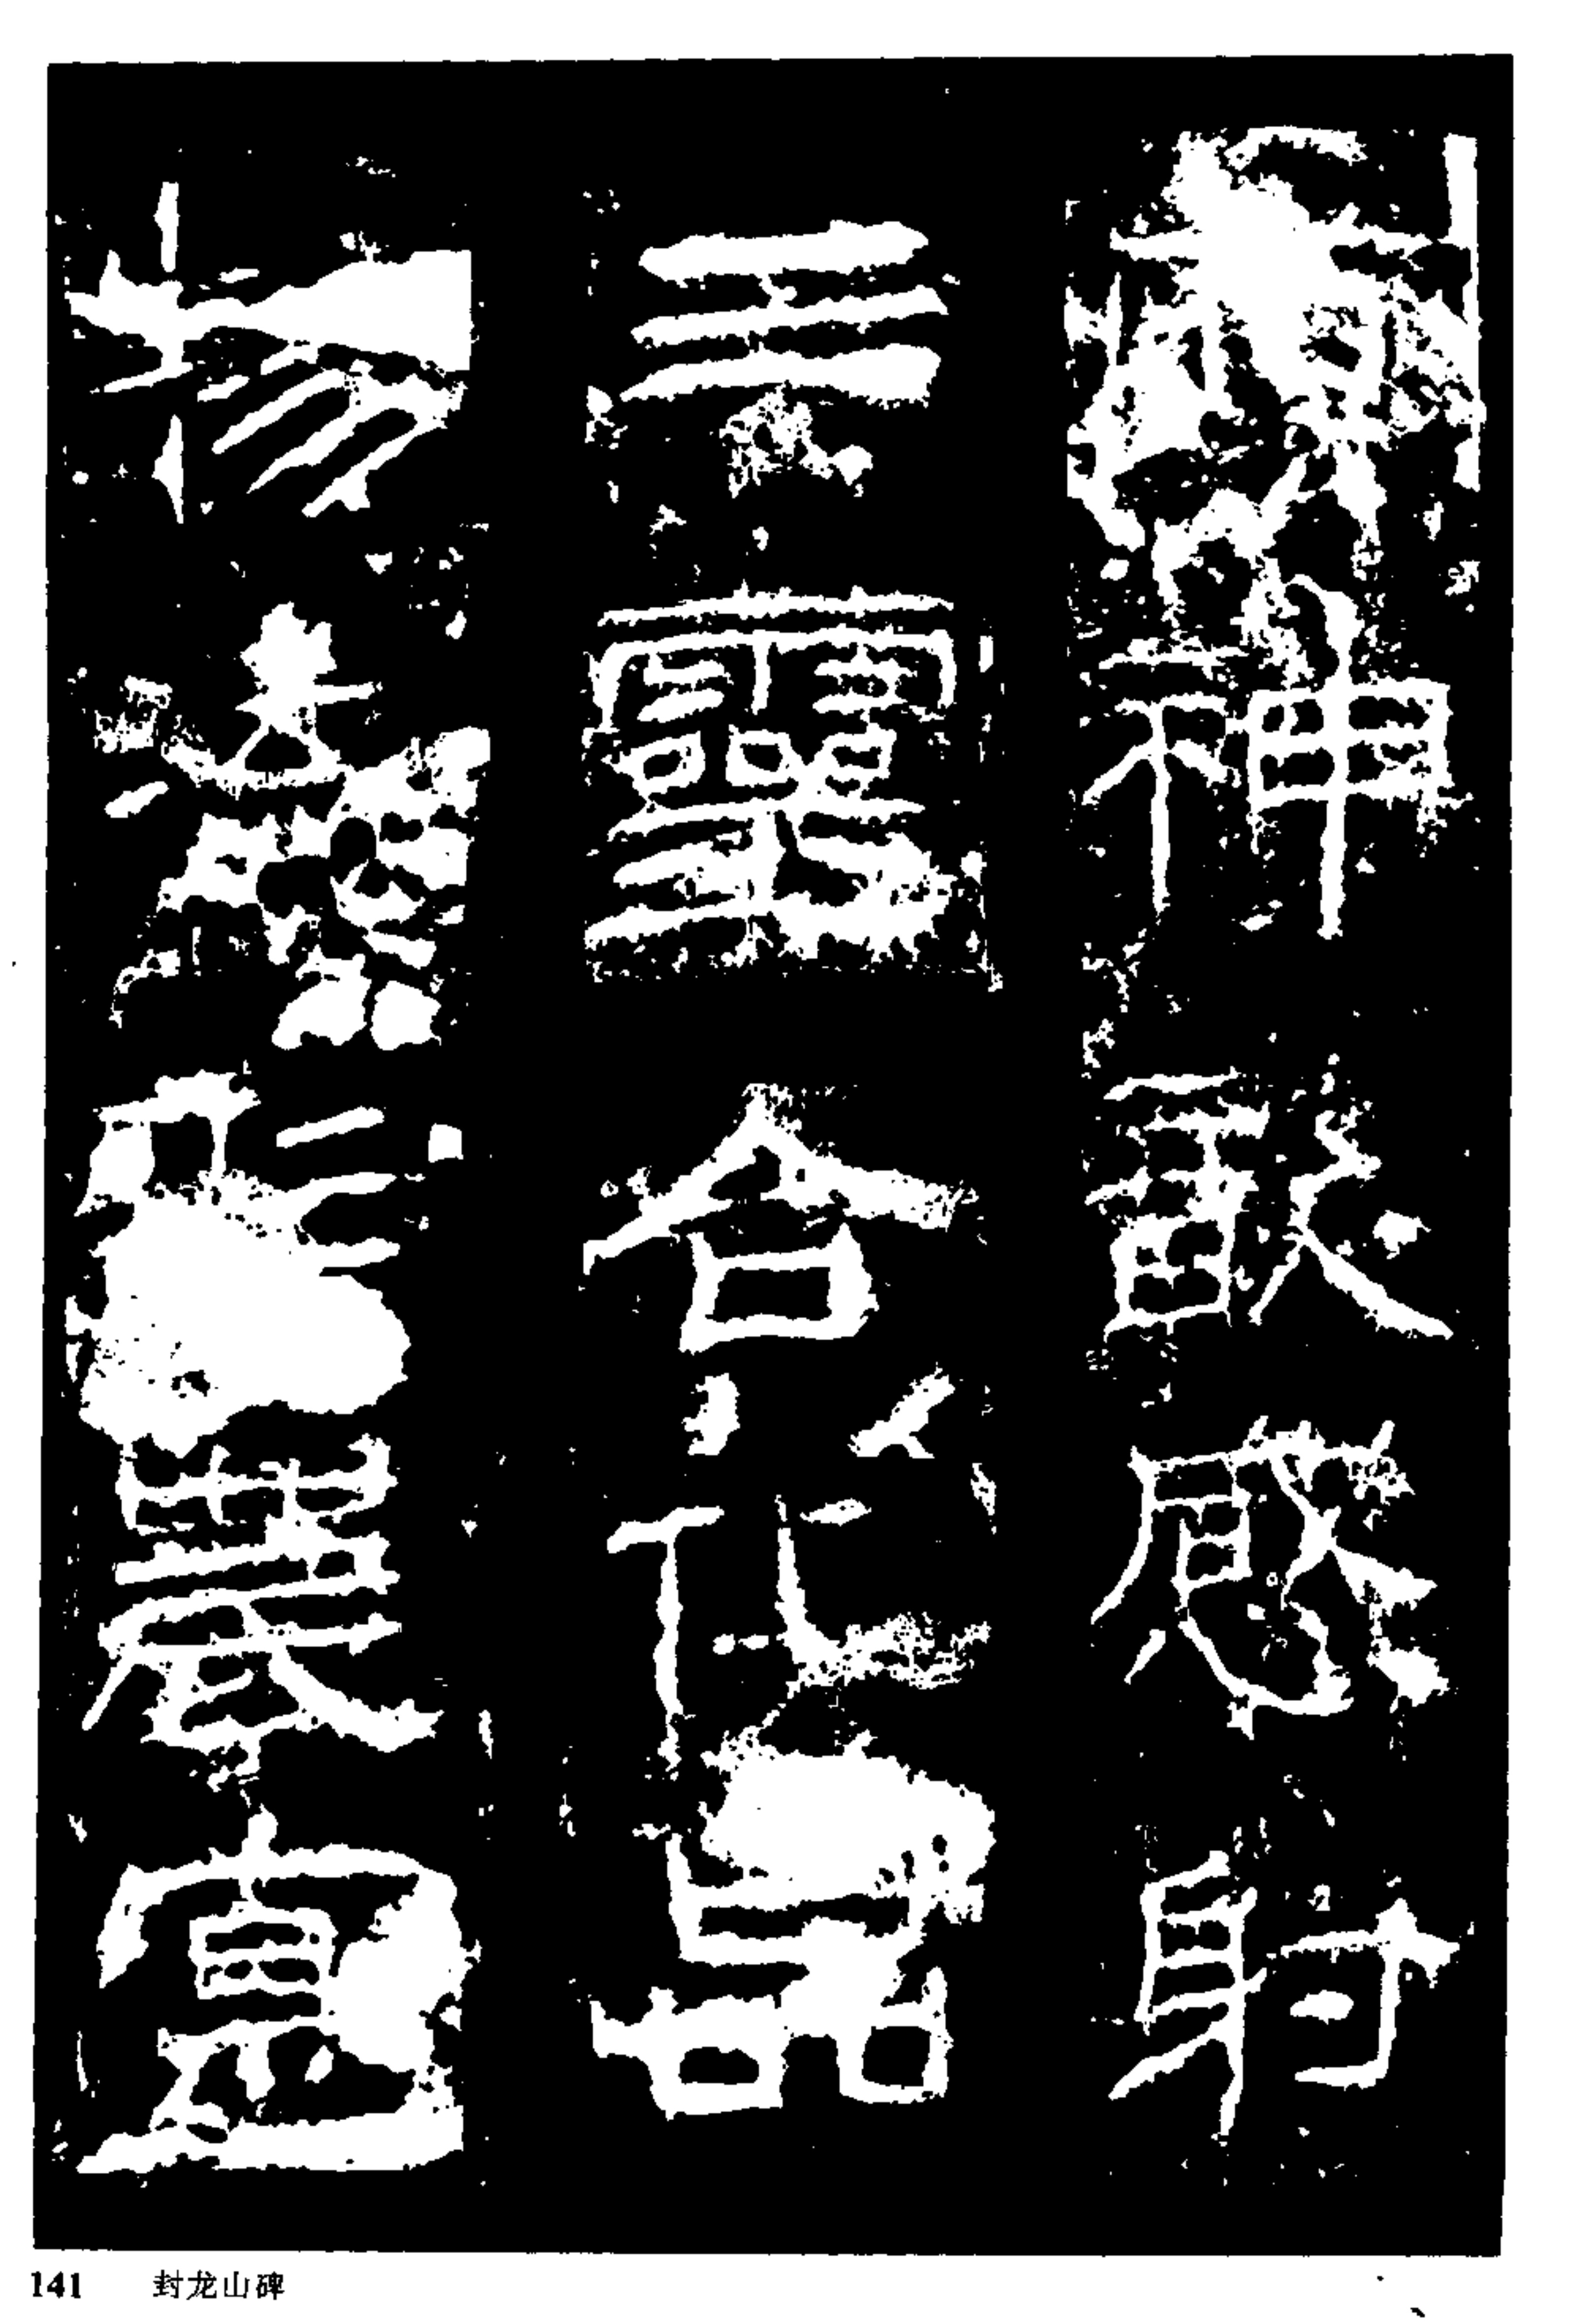 神歆感射
三靈合化品
物流形農寔
141 封龙山碑